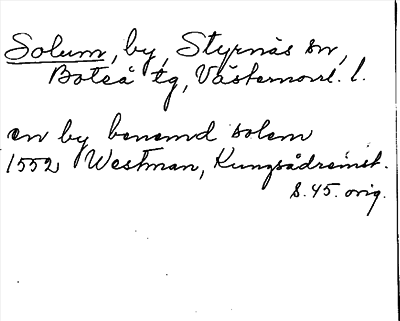 Solum, by, Styrnäs sn,
Boteå tg, Västernorrl. l.
en by benemd solem
1552 Westman, Kungsådreinst.
s. 45. orig.